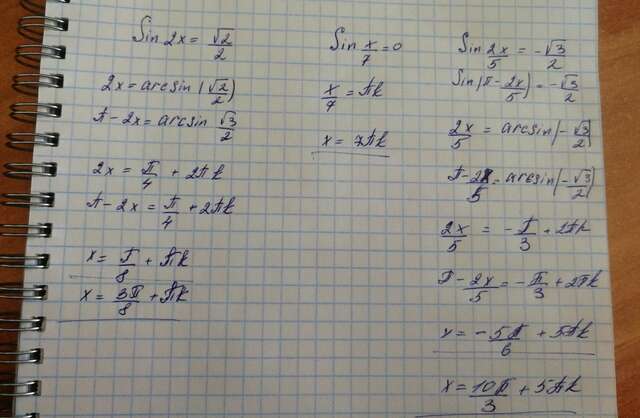 Sin 2x = √2/2
2x = arcsin(√2/2)
π - 2x = arcsin √3/2
2x = π/4 + 2πk
π - 2x = π/4 + 2πk
x = π/8 + πk
x = 3π/8 + πk
Sin x/7 = 0
x/7 = πk
x = 7πk
Sin 2x/5 = -√3/2
Sin(π - 2x/5) = -√3/2
2x/5 = arcsin(-√3/2)
π - 2x/5 = arcsin(-√3/2)
2x/5 = -π/3 + 2πk
π - 2x/5 = -π/3 + 2πk
x = -5π/6 + 5πk
x = 10π/3 + 5πk